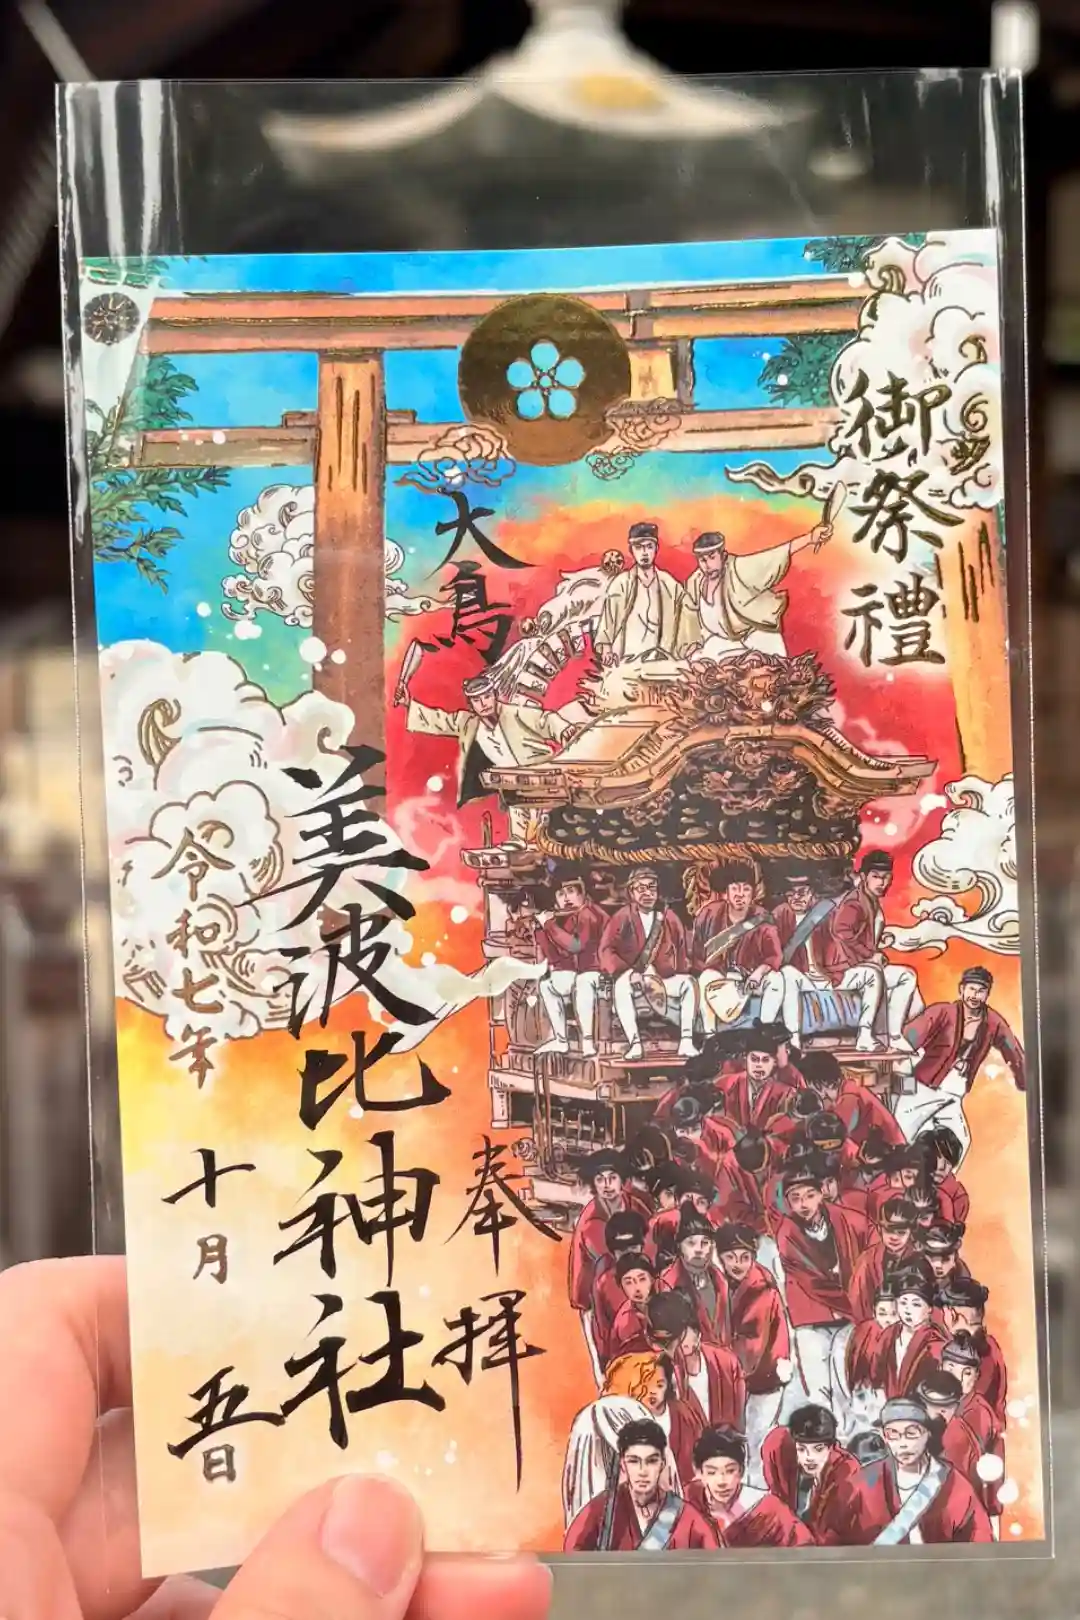 御祭禮
奉拝
大鳥
美波比神社
令和七年
十月
五日